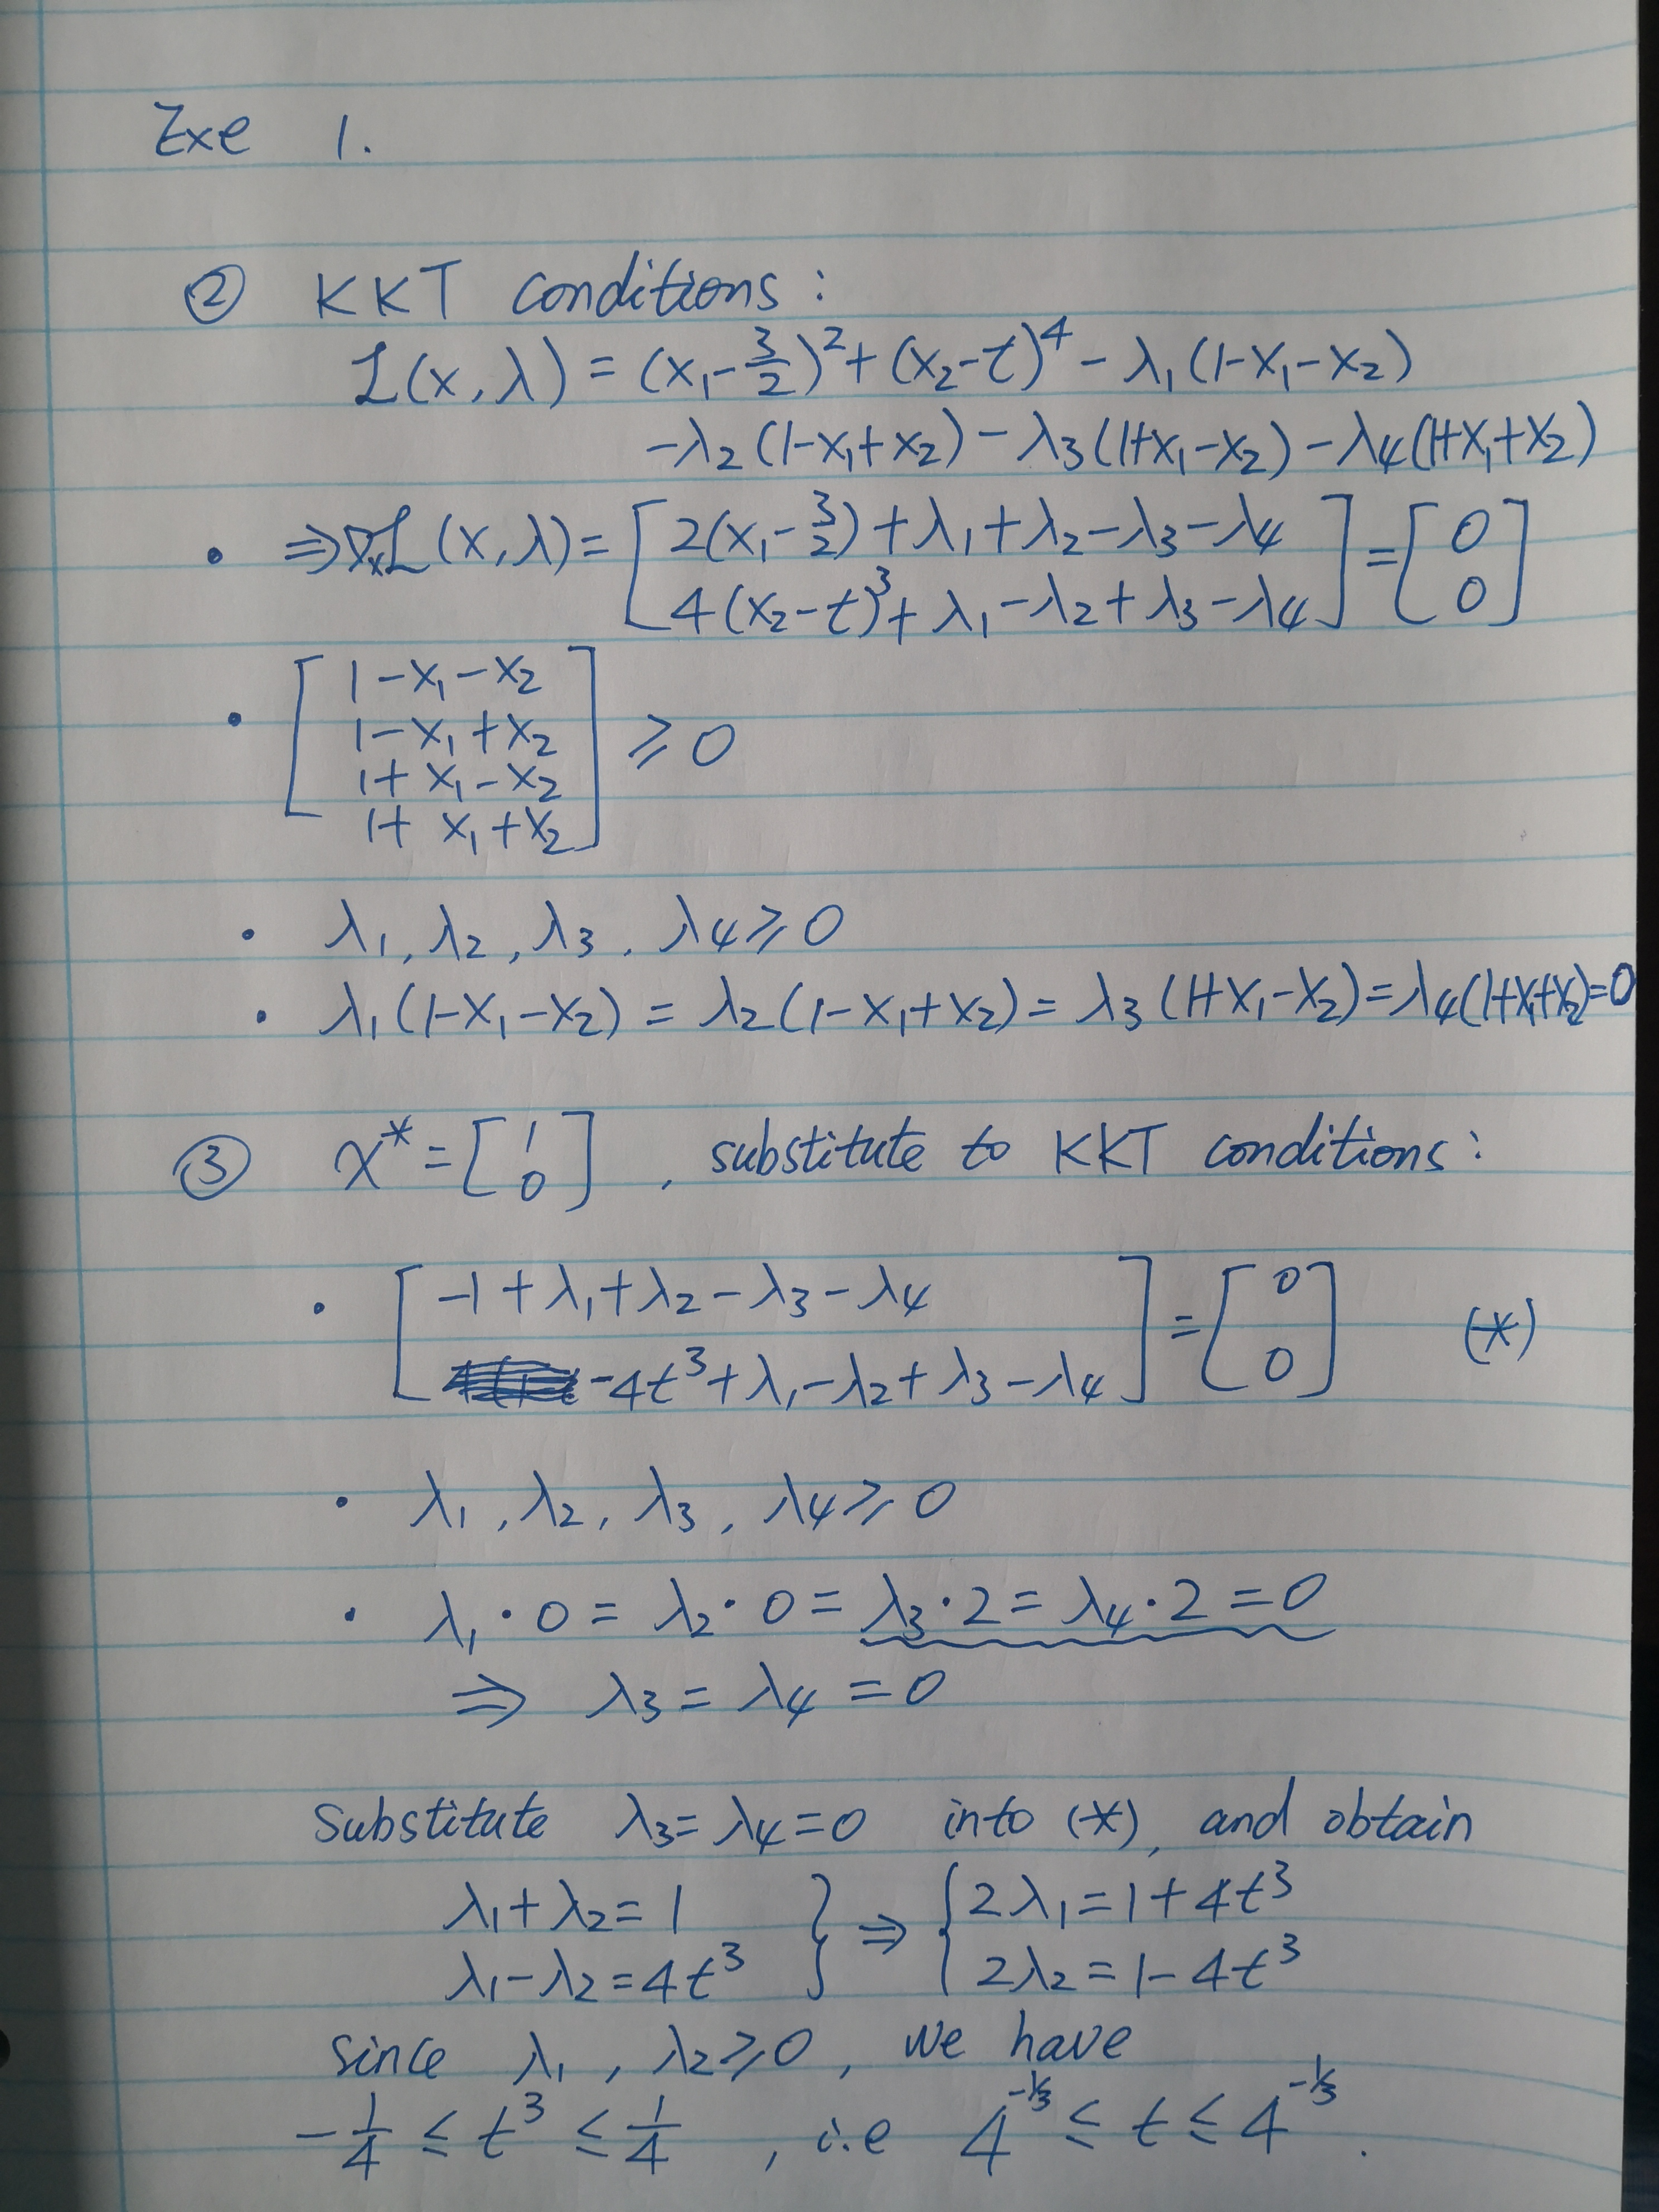 Exe 1.
② KKT conditions:
ℒ(x, λ) = (x₁ - 3/2)² + (x₂ - t)⁴ - λ₁(1-x₁-x₂)
-λ₂(1-x₁+x₂) - λ₃(1+x₁-x₂) - λ₄(1+x₁+x₂)
• ⇒ ∇ₓℒ(x, λ) = [ 2(x₁ - 3/2) + λ₁ + λ₂ - λ₃ - λ₄ ; 4(x₂ - t)³ + λ₁ - λ₂ + λ₃ - λ₄ ] = [ 0 ; 0 ]
• [ 1 - x₁ - x₂
1 - x₁ + x₂
1 + x₁ - x₂
1 + x₁ + x₂ ] ≥ 0
• λ₁, λ₂, λ₃, λ₄ ≥ 0
• λ₁(1-x₁-x₂) = λ₂(1-x₁+x₂) = λ₃(1+x₁-x₂) = λ₄(1+x₁+x₂) = 0
③ x* = [ 1 ; 0 ], substitute to KKT conditions:
• [ -1 + λ₁ + λ₂ - λ₃ - λ₄ ; -4t³ + λ₁ - λ₂ + λ₃ - λ₄ ] = [ 0 ; 0 ] (*)
• λ₁, λ₂, λ₃, λ₄ ≥ 0
• λ₁·0 = λ₂·0 = λ₃·2 = λ₄·2 = 0
⇒ λ₃ = λ₄ = 0
Substitute λ₃ = λ₄ = 0 into (*), and obtain
λ₁ + λ₂ = 1 } ⇒ { 2λ₁ = 1 + 4t³
λ₁ - λ₂ = 4t³ } { 2λ₂ = 1 - 4t³
since λ₁, λ₂ ≥ 0, we have
-1/4 ≤ t³ ≤ 1/4, i.e 4^(-1/3) ≤ t ≤ 4^(-1/3).